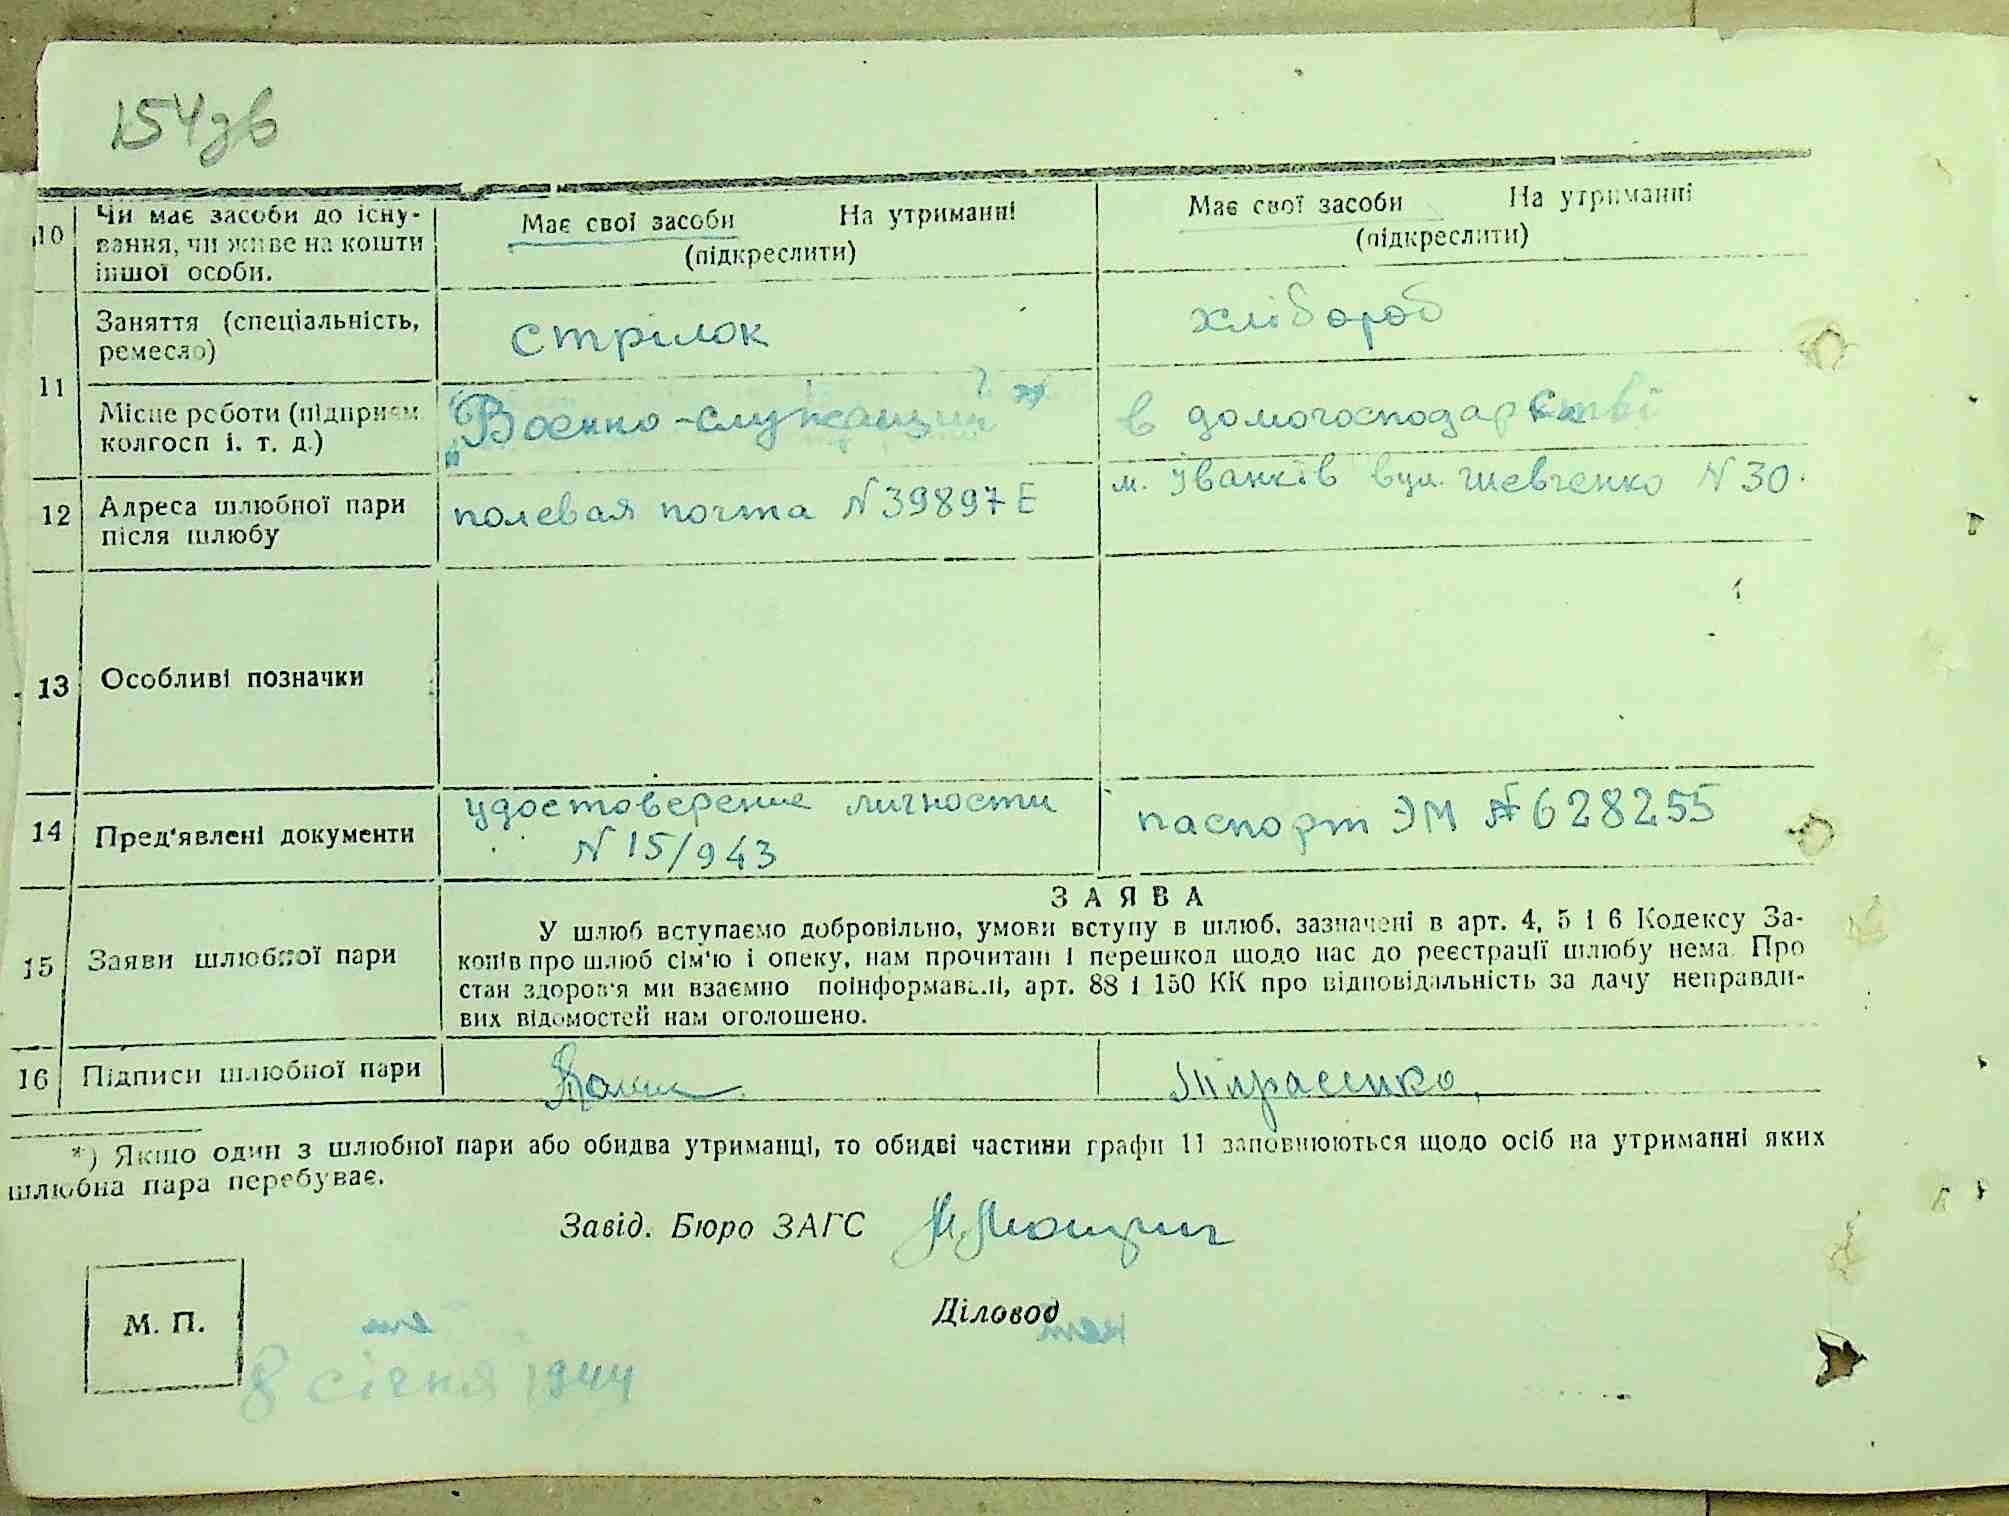 154зв
10 Чи має засоби до існу-
вання, чи живе на кошти
іншої особи.
Має свої засоби На утриманні
(підкреслити)
Має свої засоби На утриманні
(підкреслити)
11
Заняття (спеціальність,
ремесло)
стрілок
хлібороб
Місце роботи (підприєм.
колгосп і. т. д.)
"Военно-служащий"
в домогосподарстві
12 Адреса шлюбної пари
після шлюбу
полевая почта N 39897 Е
м. Іванків вул. Шевченко N 30.
13 Особливі позначки
14 Пред'явлені документи
удостоверение личности
N 15/943
паспорт ЭМ № 628255
15 Заяви шлюбної пари
ЗАЯВА
У шлюб вступаємо добровільно, умови вступу в шлюб, зазначені в арт. 4, 5 і 6 Кодексу За-
конів про шлюб сім'ю і опеку, нам прочитані і перешкод щодо нас до реєстрації шлюбу нема. Про
стан здоров'я ми взаємно поінформавалі, арт. 88 і 150 КК про відповідальність за дачу неправди-
вих відомостей нам оголошено.
16 Підписи шлюбної пари
Тарасенко
*) Якщо один з шлюбної пари або обидва утриманці, то обидві частини графи 11 заповнюються щодо осіб на утриманні яких
шлюбна пара перебуває.
Завід. Бюро ЗАГС
М. П.
Діловод
8 січня 1944